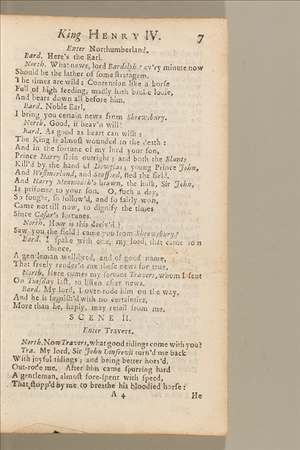 King HENRY IV. 7
Enter Northumberland.
Bard. Here's the Earl.
North. What news, lord Bardolph? ev'ry minute now
Should be the father of some stratagem.
The times are wild: Contention like a horse
Full of high feeding, madly hath broke loose,
And bears down all before him.
Bard. Noble Earl,
I bring you certain news from Shrewsbury.
North. Good, if heav'n will!
Bard. As good as heart can wish:
The King is almost wounded to the death:
And in the fortune of my lord your son,
Prince Harry slain outright; and both the Blunts
Kill'd by the hand of Douglas; young Prince John,
And Westmorland, and Stafford, fled the field.
And Harry Monmouth's brawn, the hulk, Sir John,
Is prisoner to your son. O, such a day,
So fought, so follow'd, and so fairly won,
Came not till now, to dignify the times
Since Cæsar's fortunes.
North. How is this deriv'd?
Saw you the field? came you from Shrewsbury?
Bard. I spake with one, my lord, that came from
thence,
A gentleman well-bred, and of good name,
That freely render'd me these news for true.
North. Here comes my servant Travers, whom I sent
On Tuesday last, to listen after news.
Bard. My lord, I over-rode him on the way.
And he is furnish'd with no certainties,
More than he, haply, may retail from me.
SCENE II.
Enter Travers.
North. Now Travers, what good tidings come with you?
Tra. My lord, Sir John Umfrevil turn'd me back
With joyful tidings; and being better hors'd,
Out-rode me. After him came spurring hard
A gentleman, almost fore-spent with speed,
That stopp'd by me to breathe his bloodied horse:
A 4 He